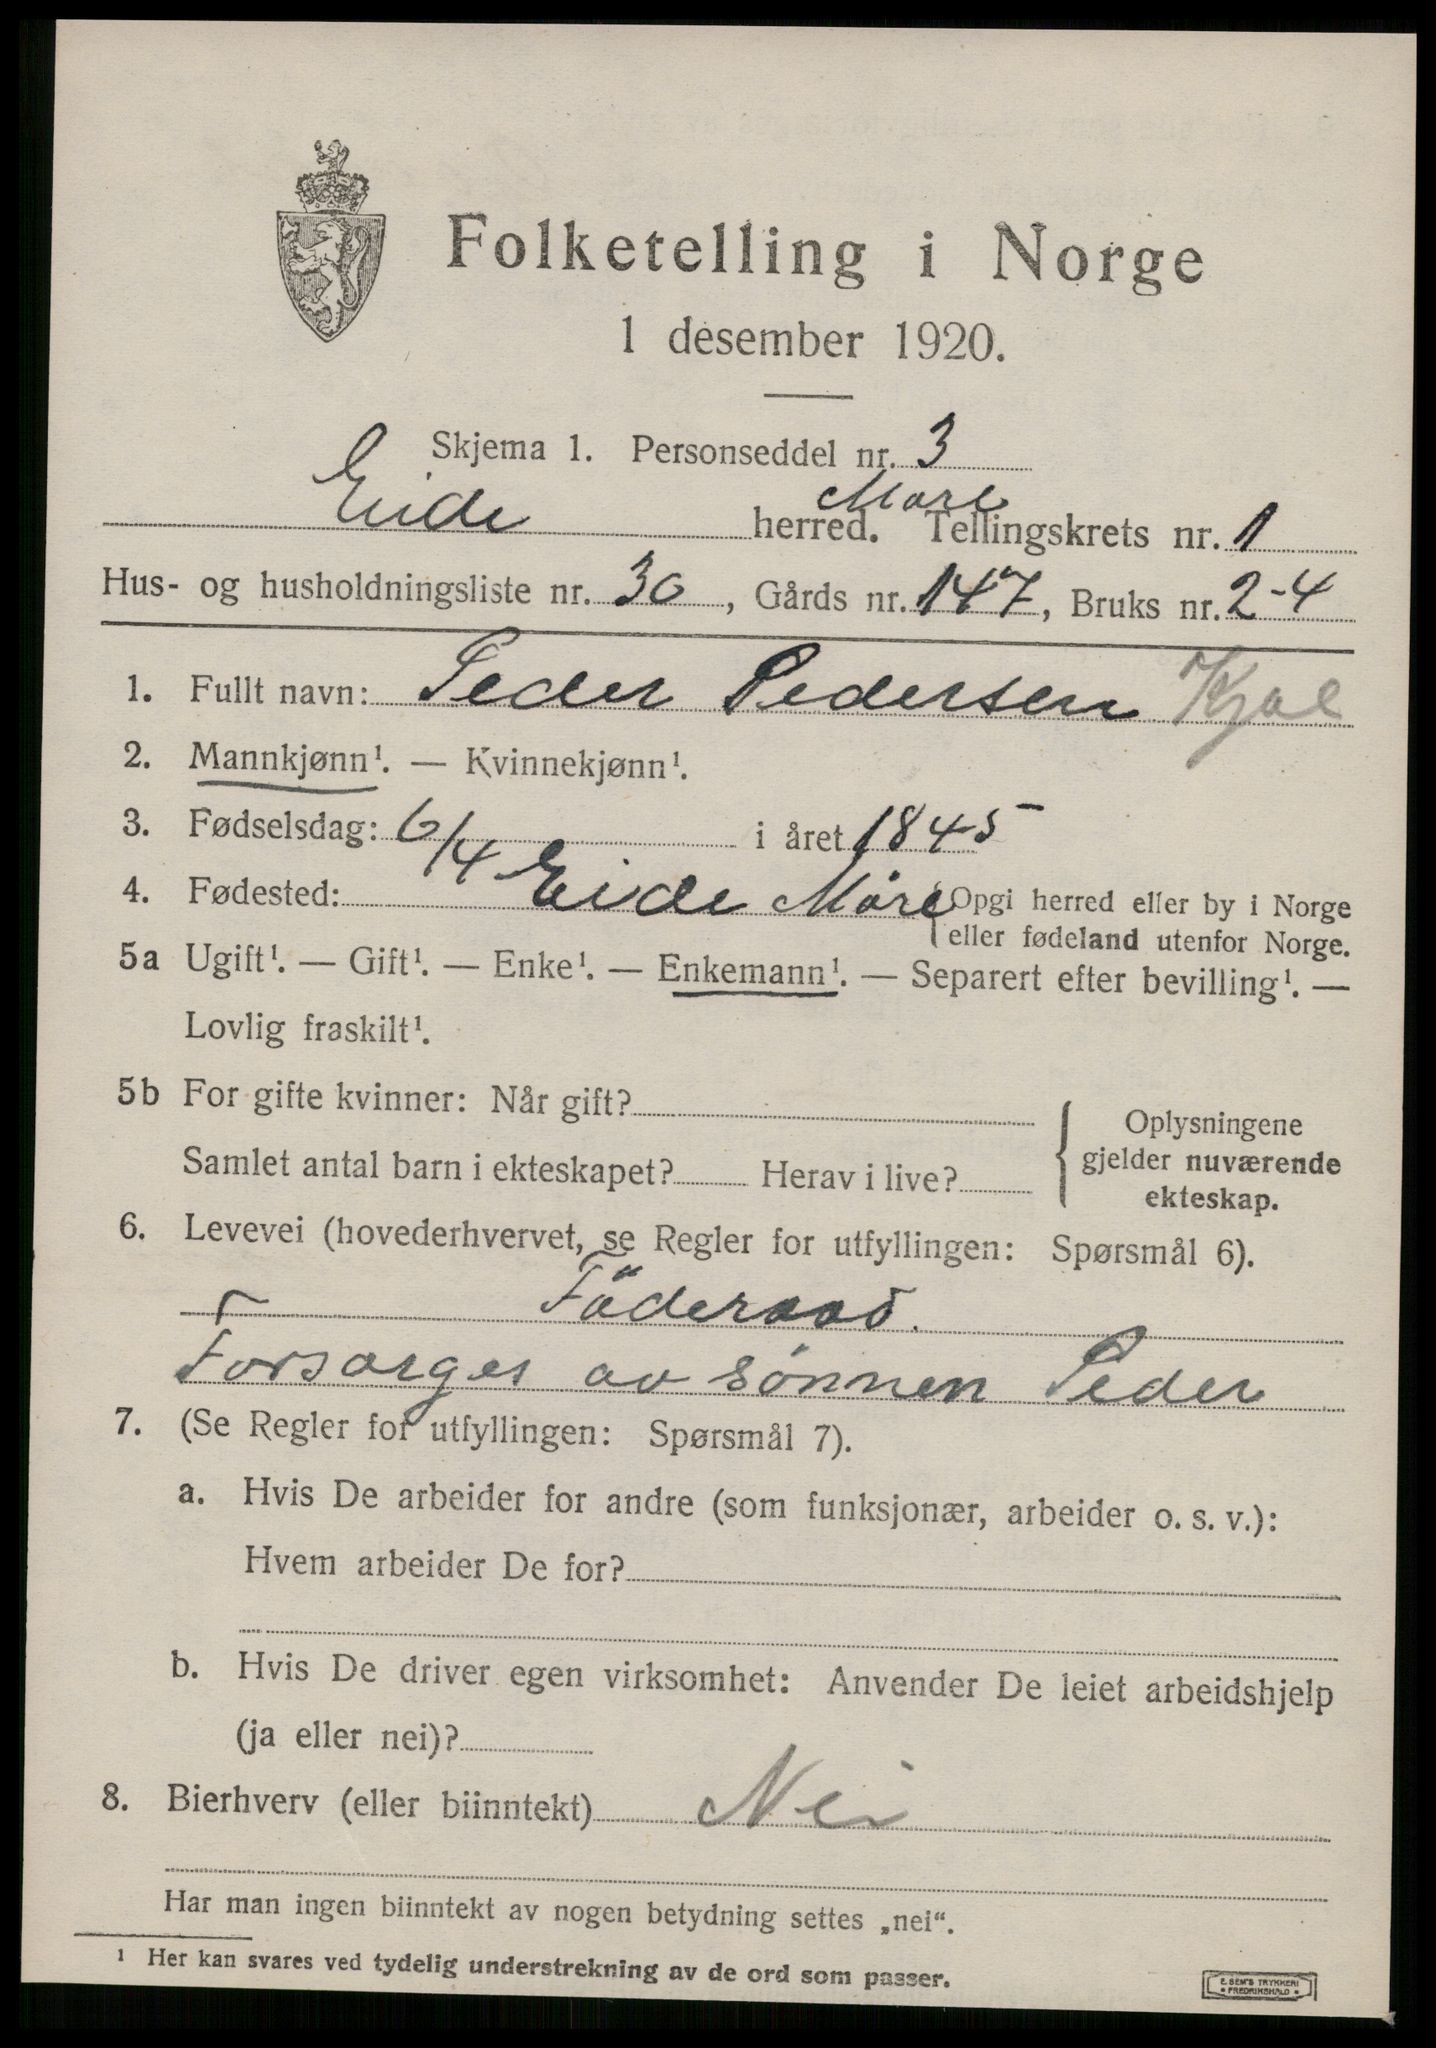 Folketelling i Norge
1 desember 1920.
Skjema 1. Personseddel nr. 3
Eide herred. Møre Tellingskrets nr. 1
Hus- og husholdningsliste nr. 30, Gårds nr. 147, Bruks nr. 2-4
1. Fullt navn: Peder Pedersen Kjøl
2. Mannkjønn¹. — Kvinnekjønn¹.
3. Fødselsdag: 6/4 i året 1845
4. Fødested: Eide Møre Opgi herred eller by i Norge
eller fødeland utenfor Norge.
5a Ugift¹. — Gift¹. — Enke¹. — Enkemann¹. — Separert efter bevilling¹. —
Lovlig fraskilt¹.
5b For gifte kvinner: Når gift?
Samlet antal barn i ekteskapet? Herav i live?
Oplysningene
gjelder nuværende
ekteskap.
6. Levevei (hovederhvervet, se Regler for utfyllingen: Spørsmål 6).
Föderaad.
Forsørges av sønnen Peder
7. (Se Regler for utfyllingen: Spørsmål 7).
a. Hvis De arbeider for andre (som funksjonær, arbeider o. s. v.):
Hvem arbeider De for?
b. Hvis De driver egen virksomhet: Anvender De leiet arbeidshjelp
(ja eller nei)?
8. Bierhverv (eller biinntekt) Nei
Har man ingen biinntekt av nogen betydning settes „nei“.
¹ Her kan svares ved tydelig understrekning av de ord som passer.
E. SEM'S TRYKKERI
* FREDRIKSHALD *